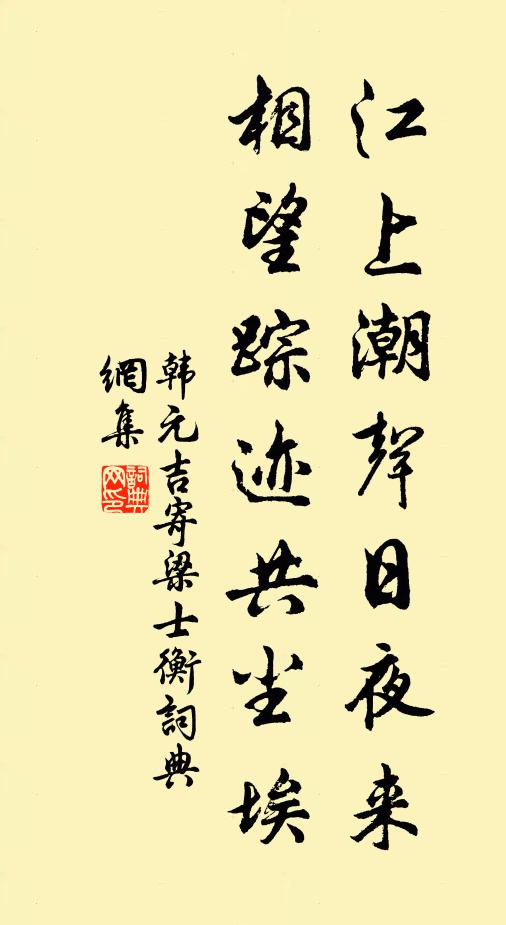 江上潮聲日夜来
相望踪迹共尘埃
韩元吉寄梁士衡詞典
網集
詞典
网印